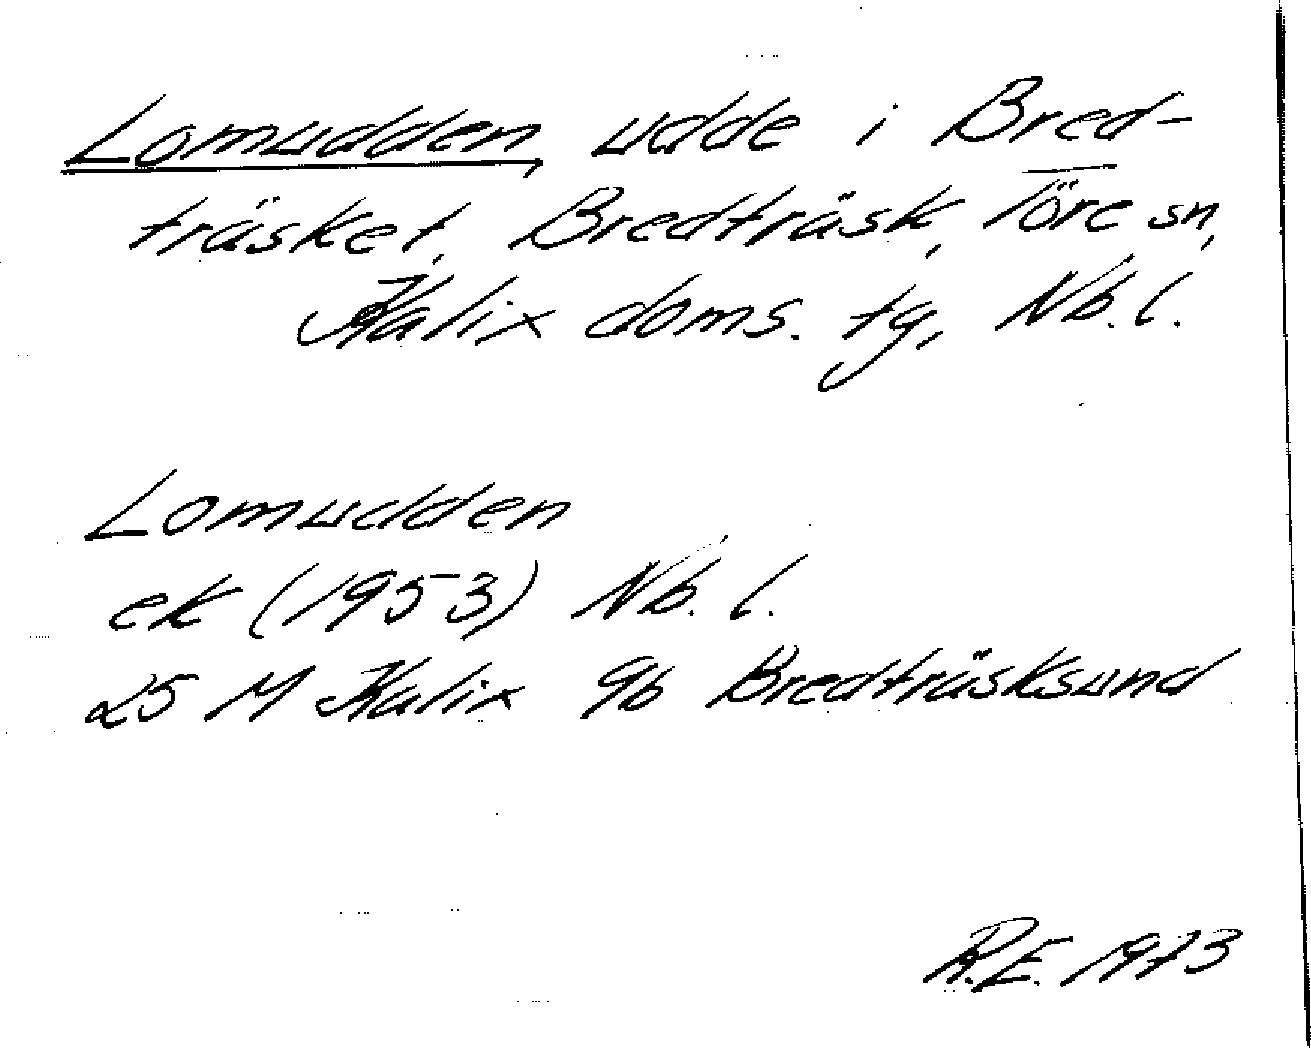 Lomudden, udde i Bred-
träsket, Bredträsk, Töre sn,
Kalix doms. tg, Nb. l.
Lomudden
ek (1953) Nb. l.
25 M Kalix 9b Bredträsksund
R.E. 1973